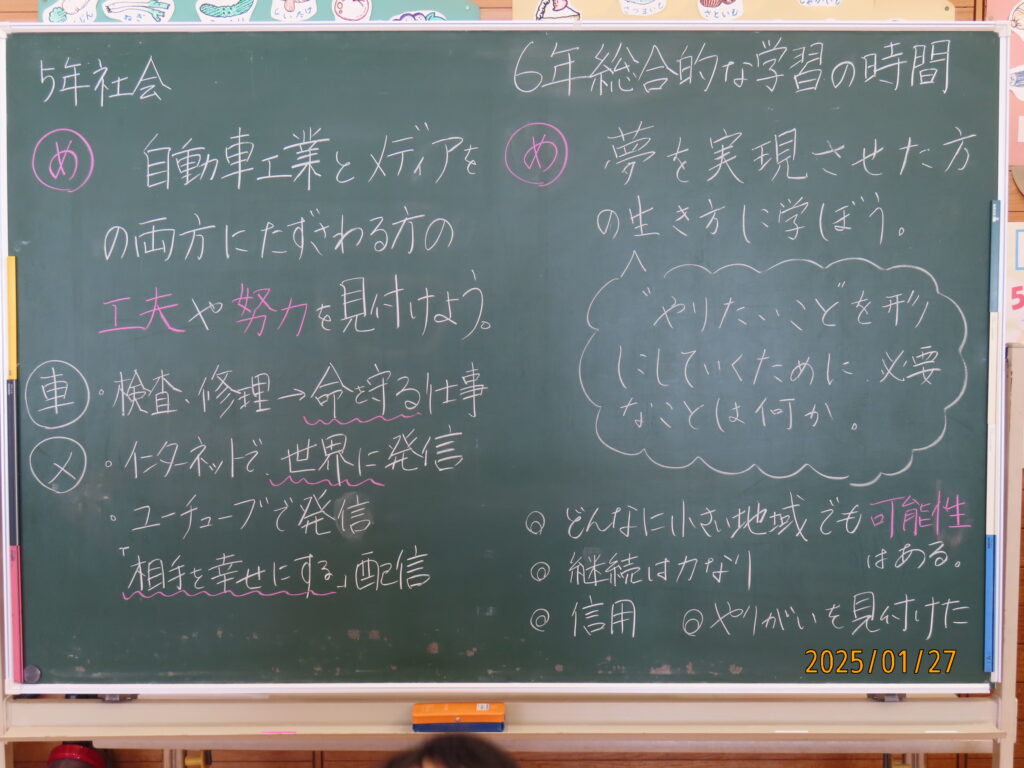 5年社会
め 自動車工業とメディアを
の両方にたずさわる方の
工夫や努力を見付けよう。
車 ・検査、修理→命を守る仕事
メ ・インターネットで世界に発信
・ユーチューブで発信
「相手を幸せにする」配信
6年総合的な学習の時間
め 夢を実現させた方
の生き方に学ぼう。
“やりたいこと”を形
にしていくために必要
なことは何か。
◎ どんなに小さい地域でも可能性
はある。
◎ 継続は力なり
◎ 信用 ◎やりがいを見付けた
2025/01/27
にんじん
ねぎ
きゅうり
しいたけ
さつまいも
さといも
じゃがいも